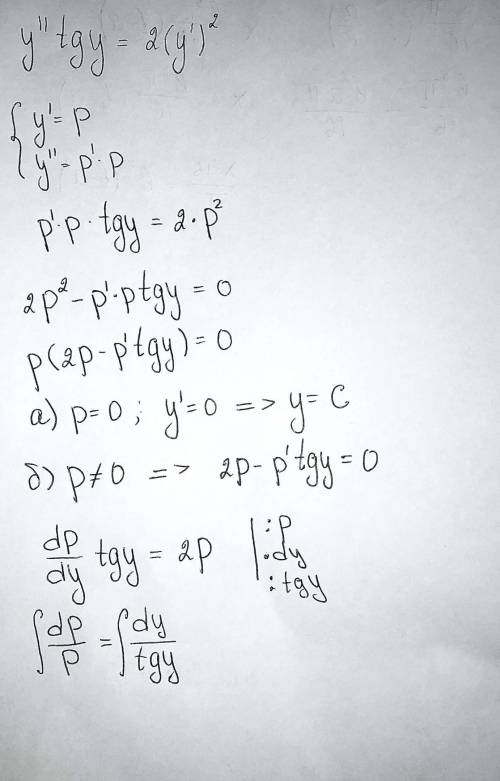 y'' tgy = 2(y')²
{ y' = p
y'' = p' · p
p' · p · tgy = 2 · p²
2p² - p' · p tgy = 0
p(2p - p' tgy) = 0
а) p = 0 ; y' = 0 => y = C
б) p ≠ 0 => 2p - p' tgy = 0
dp/dy tgy = 2p | :p
·dy
:tgy
∫ dp/p = ∫ dy/tgy